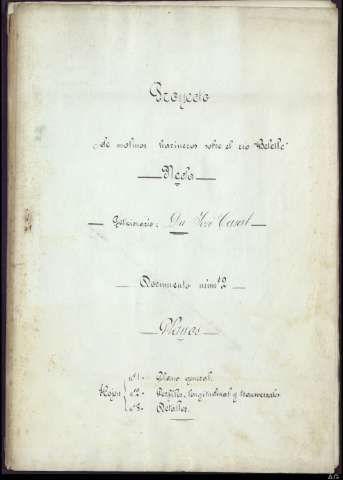 Proyecto
de molinos harineros sobre el rio "Belelle"
Neda
Peticionario: Dn José Casal
Documento núm 2
Planos
Hojas
nº1- Plano general.
nº2- Perfiles, longitudinal y transversales
nº3- Detalles.